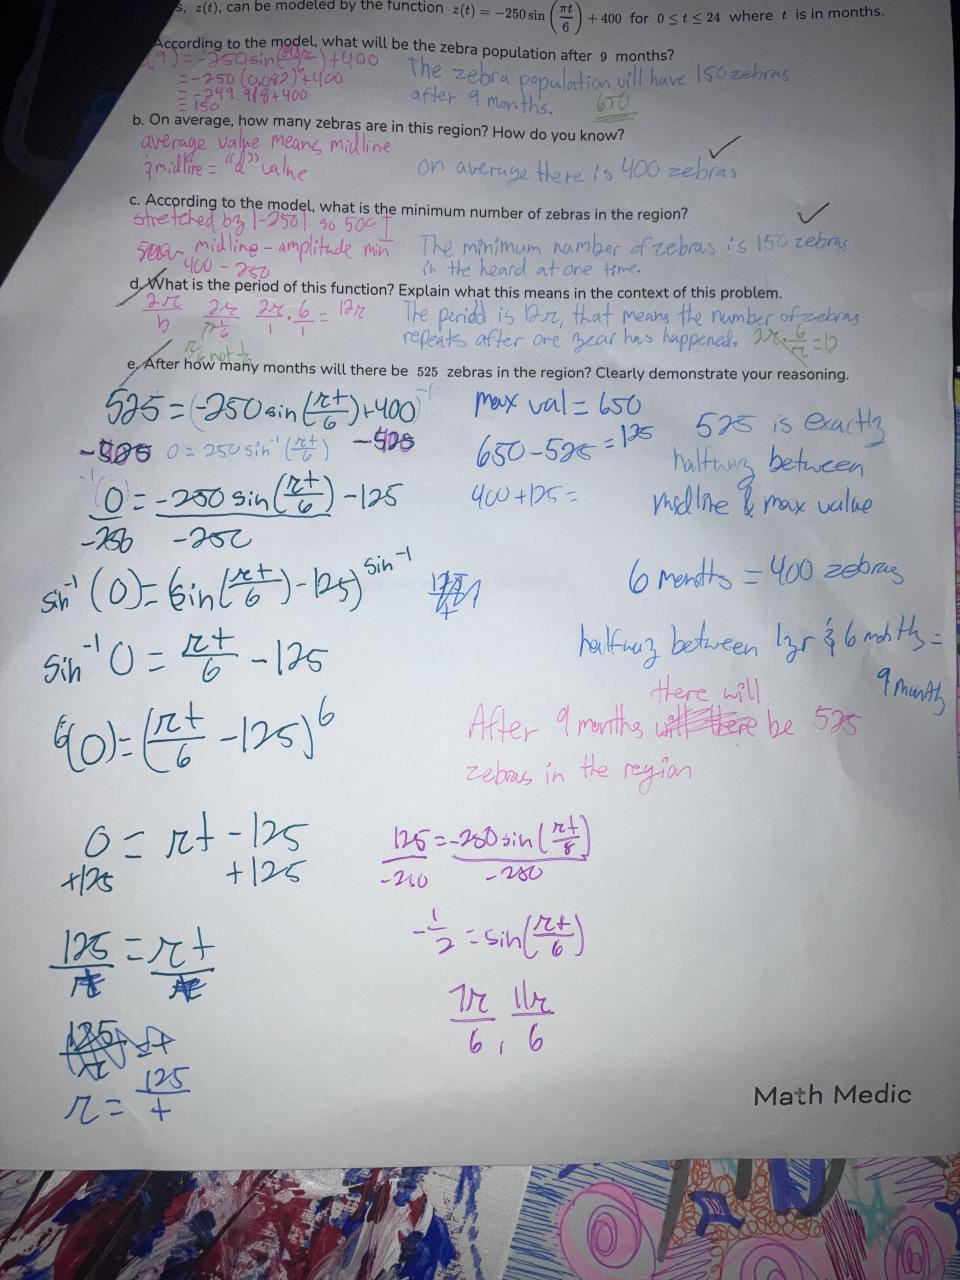 s, z(t), can be modeled by the function z(t) = −250 sin (πt/6) + 400 for 0 ≤ t ≤ 24 where t is in months.
According to the model, what will be the zebra population after 9 months?
= -250 (0.082) + 400
= -249.918 + 400
= 150
The zebra population will have 150 zebras
after 9 months. 650
b. On average, how many zebras are in this region? How do you know?
average value means midline
& midline = "d" value
on average there is 400 zebras
c. According to the model, what is the minimum number of zebras in the region?
stretched by |-250| so 500
midline - amplitude min
400 - 250
The minimum number of zebras is 150 zebras
in the heard at one time.
d. What is the period of this function? Explain what this means in the context of this problem.
2π/b 2π/(π/6) 2π/1 · 6/1 = 12π
The period is 12π, that means the number of zebras
repeats after one year has happened. 2π · 6/π = 12
π/6 not 1/6
e. After how many months will there be 525 zebras in the region? Clearly demonstrate your reasoning.
525 = (-250 sin (πt/6) + 400)⁻¹
0 = 250 sin⁻¹ (πt/6)
0 = -250 sin (πt/6) - 125
-250 -250
sin⁻¹ (0) = (sin (πt/6) - 125) sin⁻¹
sin⁻¹ 0 = πt/6 - 125
6(0) = (πt/6 - 125)6
0 = πt - 125
+125 +125
125 = πt
π = 125/t
max val = 650
650 - 525 = 125
400 + 125 =
525 is exactly
halfway between
midline & max value
6 months = 400 zebras
halfway between 1yr & 6 months =
9 months
There will
After 9 months be 525
zebras in the region
125 = -250 sin (πt/6)
-250 -250
-1/2 = sin (πt/6)
7π/6, 11π/6
Math Medic